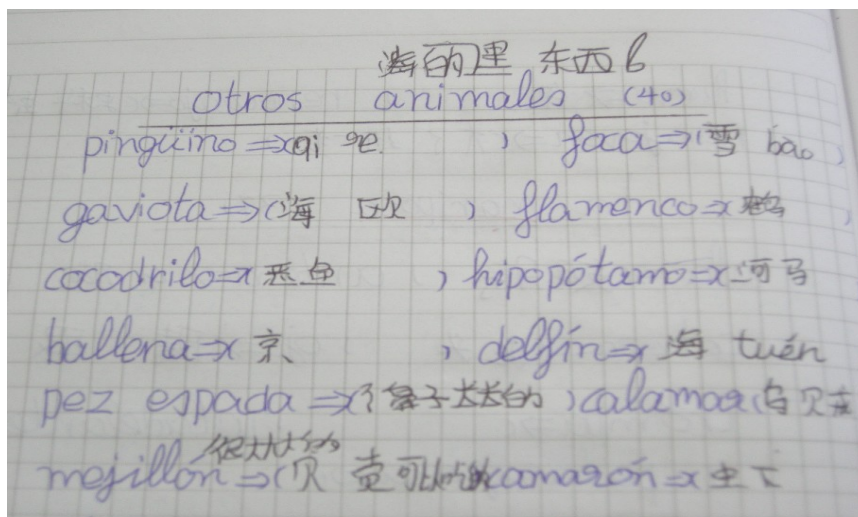 海的里 东西6
otros animales (40)
pingüino ⇒ qi e , foca ⇒ (雪 bao ,
gaviota ⇒ (海 欧 , flamenco ⇒ 鹤 ,
cocodrilo ⇒ 恶鱼 , hipopótamo ⇒ 河马
ballena ⇒ 京 , delfín ⇒ 海 tuén
pez espada ⇒ 鼻子大大的 ) calamar (乌贝
很大大大的
mejillón ⇒ (贝 壳可以吃 camarón ⇒ 虫下